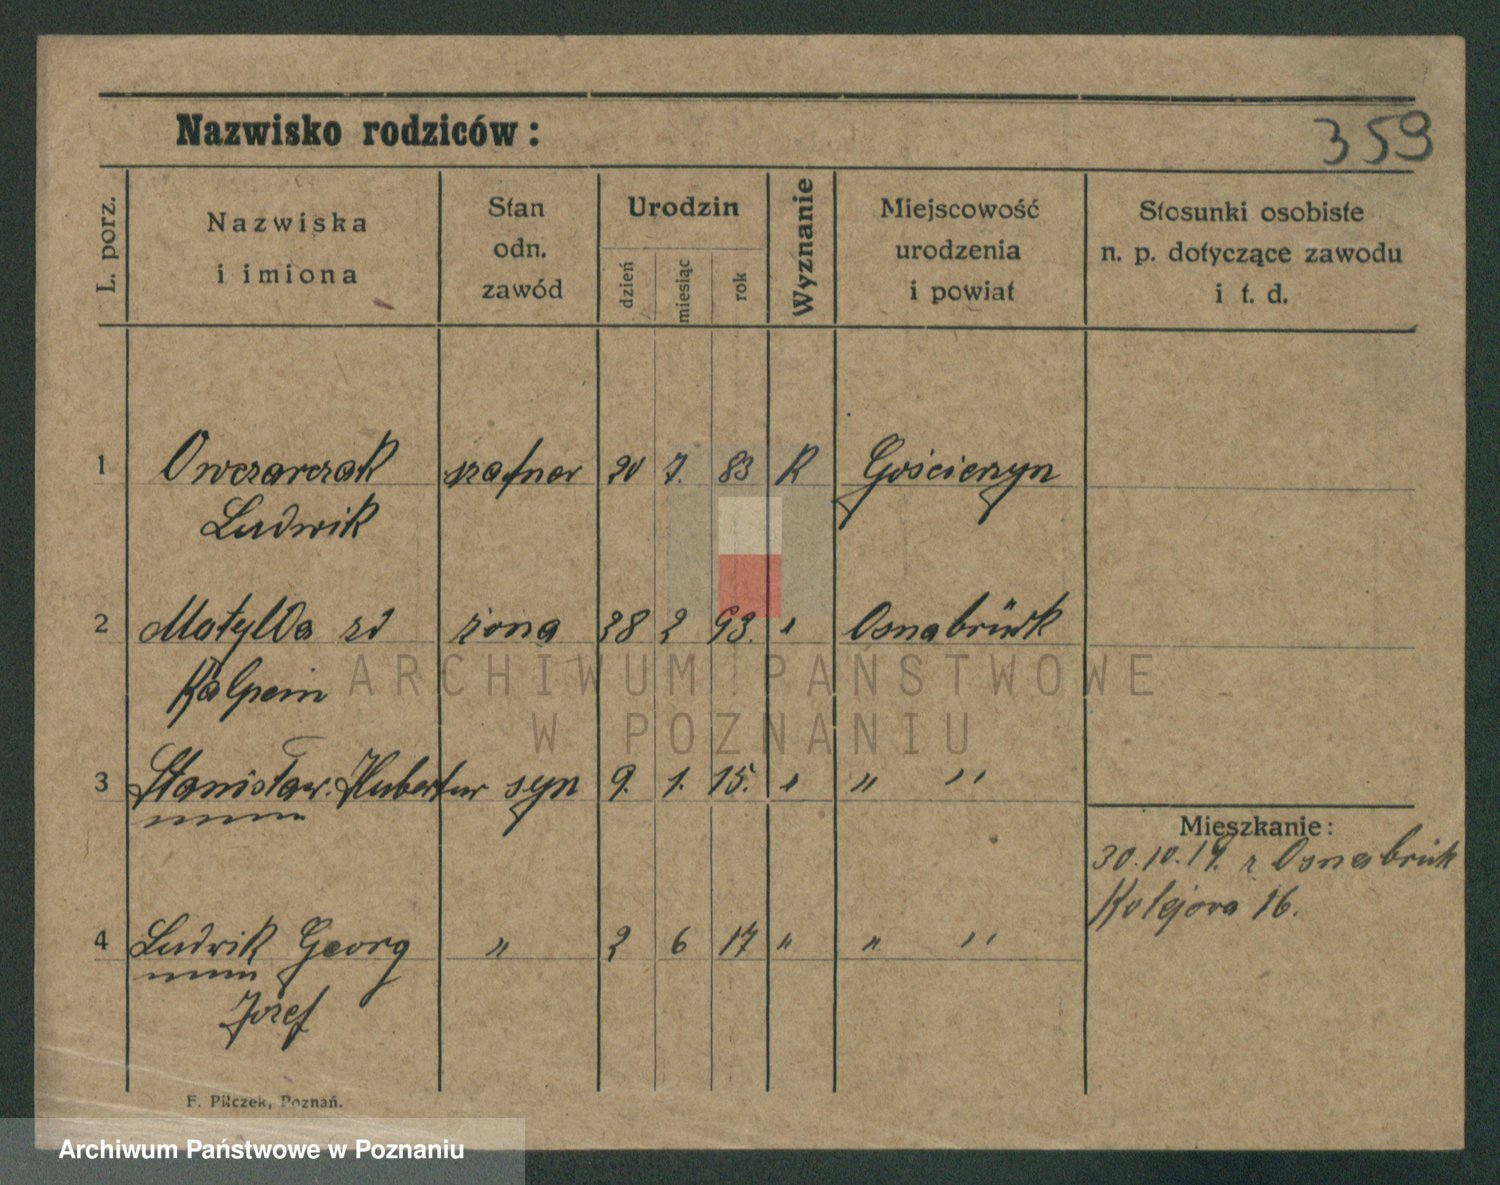 Nazwisko rodziców:
359
L. porz.
Nazwiska
i imiona
Stan
odn.
zawód
Urodzin
dzień
miesiąc
rok
Wyznanie
Miejscowość
urodzenia
i powiat
Stosunki osobiste
n. p. dotyczące zawodu
i t. d.
1 Owczarczak szafner 20 7. 83 R Gościeszyn
Ludwik
2 Matylda zd żona 28 2 93. " Osnabrück
3 Stanisław. Hubertus syn 9. 1. 15. " " "
4 Ludwik Georg " 2 6 17 " " "
Józef
Mieszkanie:
30.10.19. z Osnabrück
Kolejowa 16.
F. Pilczek, Poznań.
ARCHIWUM PAŃSTWOWE
W POZNANIU
Archiwum Państwowe w Poznaniu